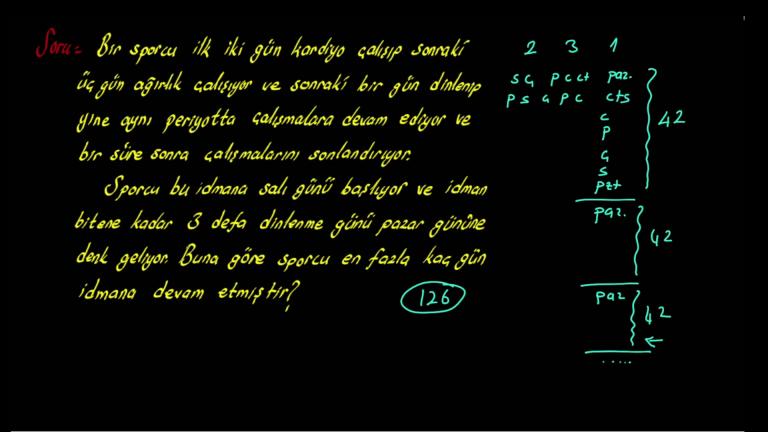 Soru= Bir sporcu ilk iki gün kardiyo çalışıp sonraki
üç gün ağırlık çalışıyor ve sonraki bir gün dinlenip
yine aynı periyotta çalışmalara devam ediyor ve
bir süre sonra çalışmalarını sonlandırıyor.
Sporcu bu idmana salı günü başlıyor ve idman
bitene kadar 3 defa dinlenme günü pazar gününe
denk geliyor. Buna göre sporcu en fazla kaç gün
idmana devam etmiştir?
126
2 3 1
S Ç P C Ct paz.
P S Ç P C cts
C
P
Ç
S
pzt
42
paz.
42
paz
42
.....